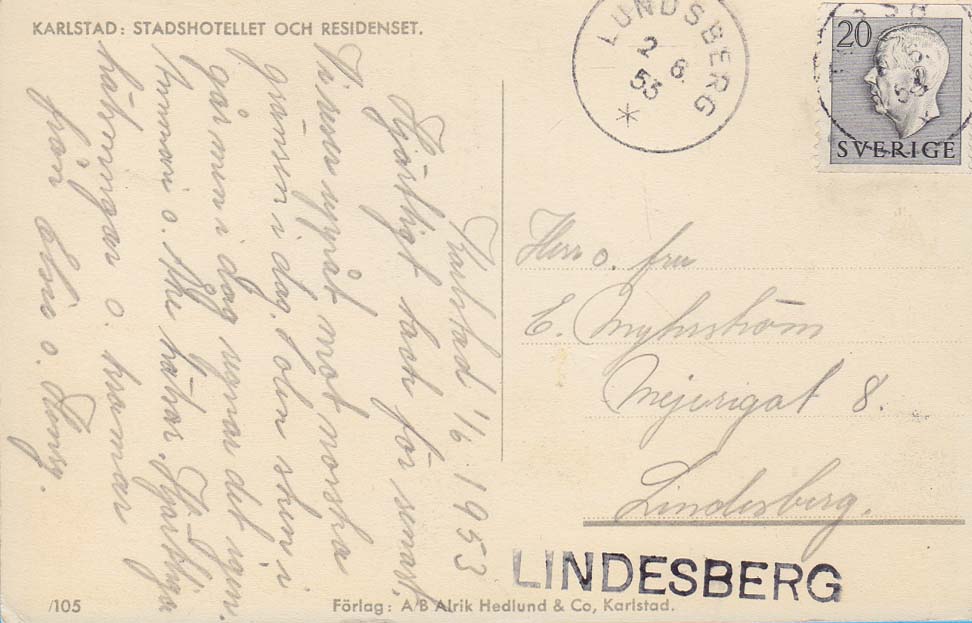 KARLSTAD: STADSHOTELLET OCH RESIDENSET.
LUNDSBERG
2 6
53
20
SVERIGE
Karlstad 1/6 1953
Hjärtligt tack för senast.
Vi susar uppåt mot norska
gränsen i dag. Solen sken i
går men i dag regnar det igen.
hälsningar o. kramar
från Elsie o.
Herr o. fru
E. Myhrström
Mejerigat 8.
Lindesberg.
LINDESBERG
/105
Förlag: A/B Alrik Hedlund & Co, Karlstad.